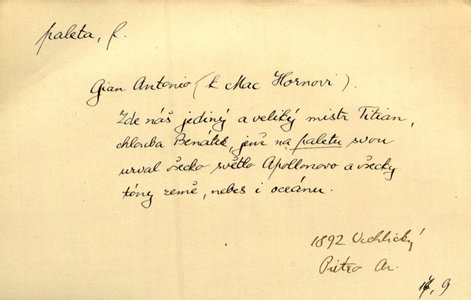 paleta, f.
Gian Antonio (k Mac Hornovi).
Zde náš jediný a veliký mistr Titian,
chlouba Benátek, jenž na paletu svou
urval všecko světlo Apollonovo a všecky
tóny země, nebes i oceánu.
1892 Vrchlický
Pietro Ar.
17, 9